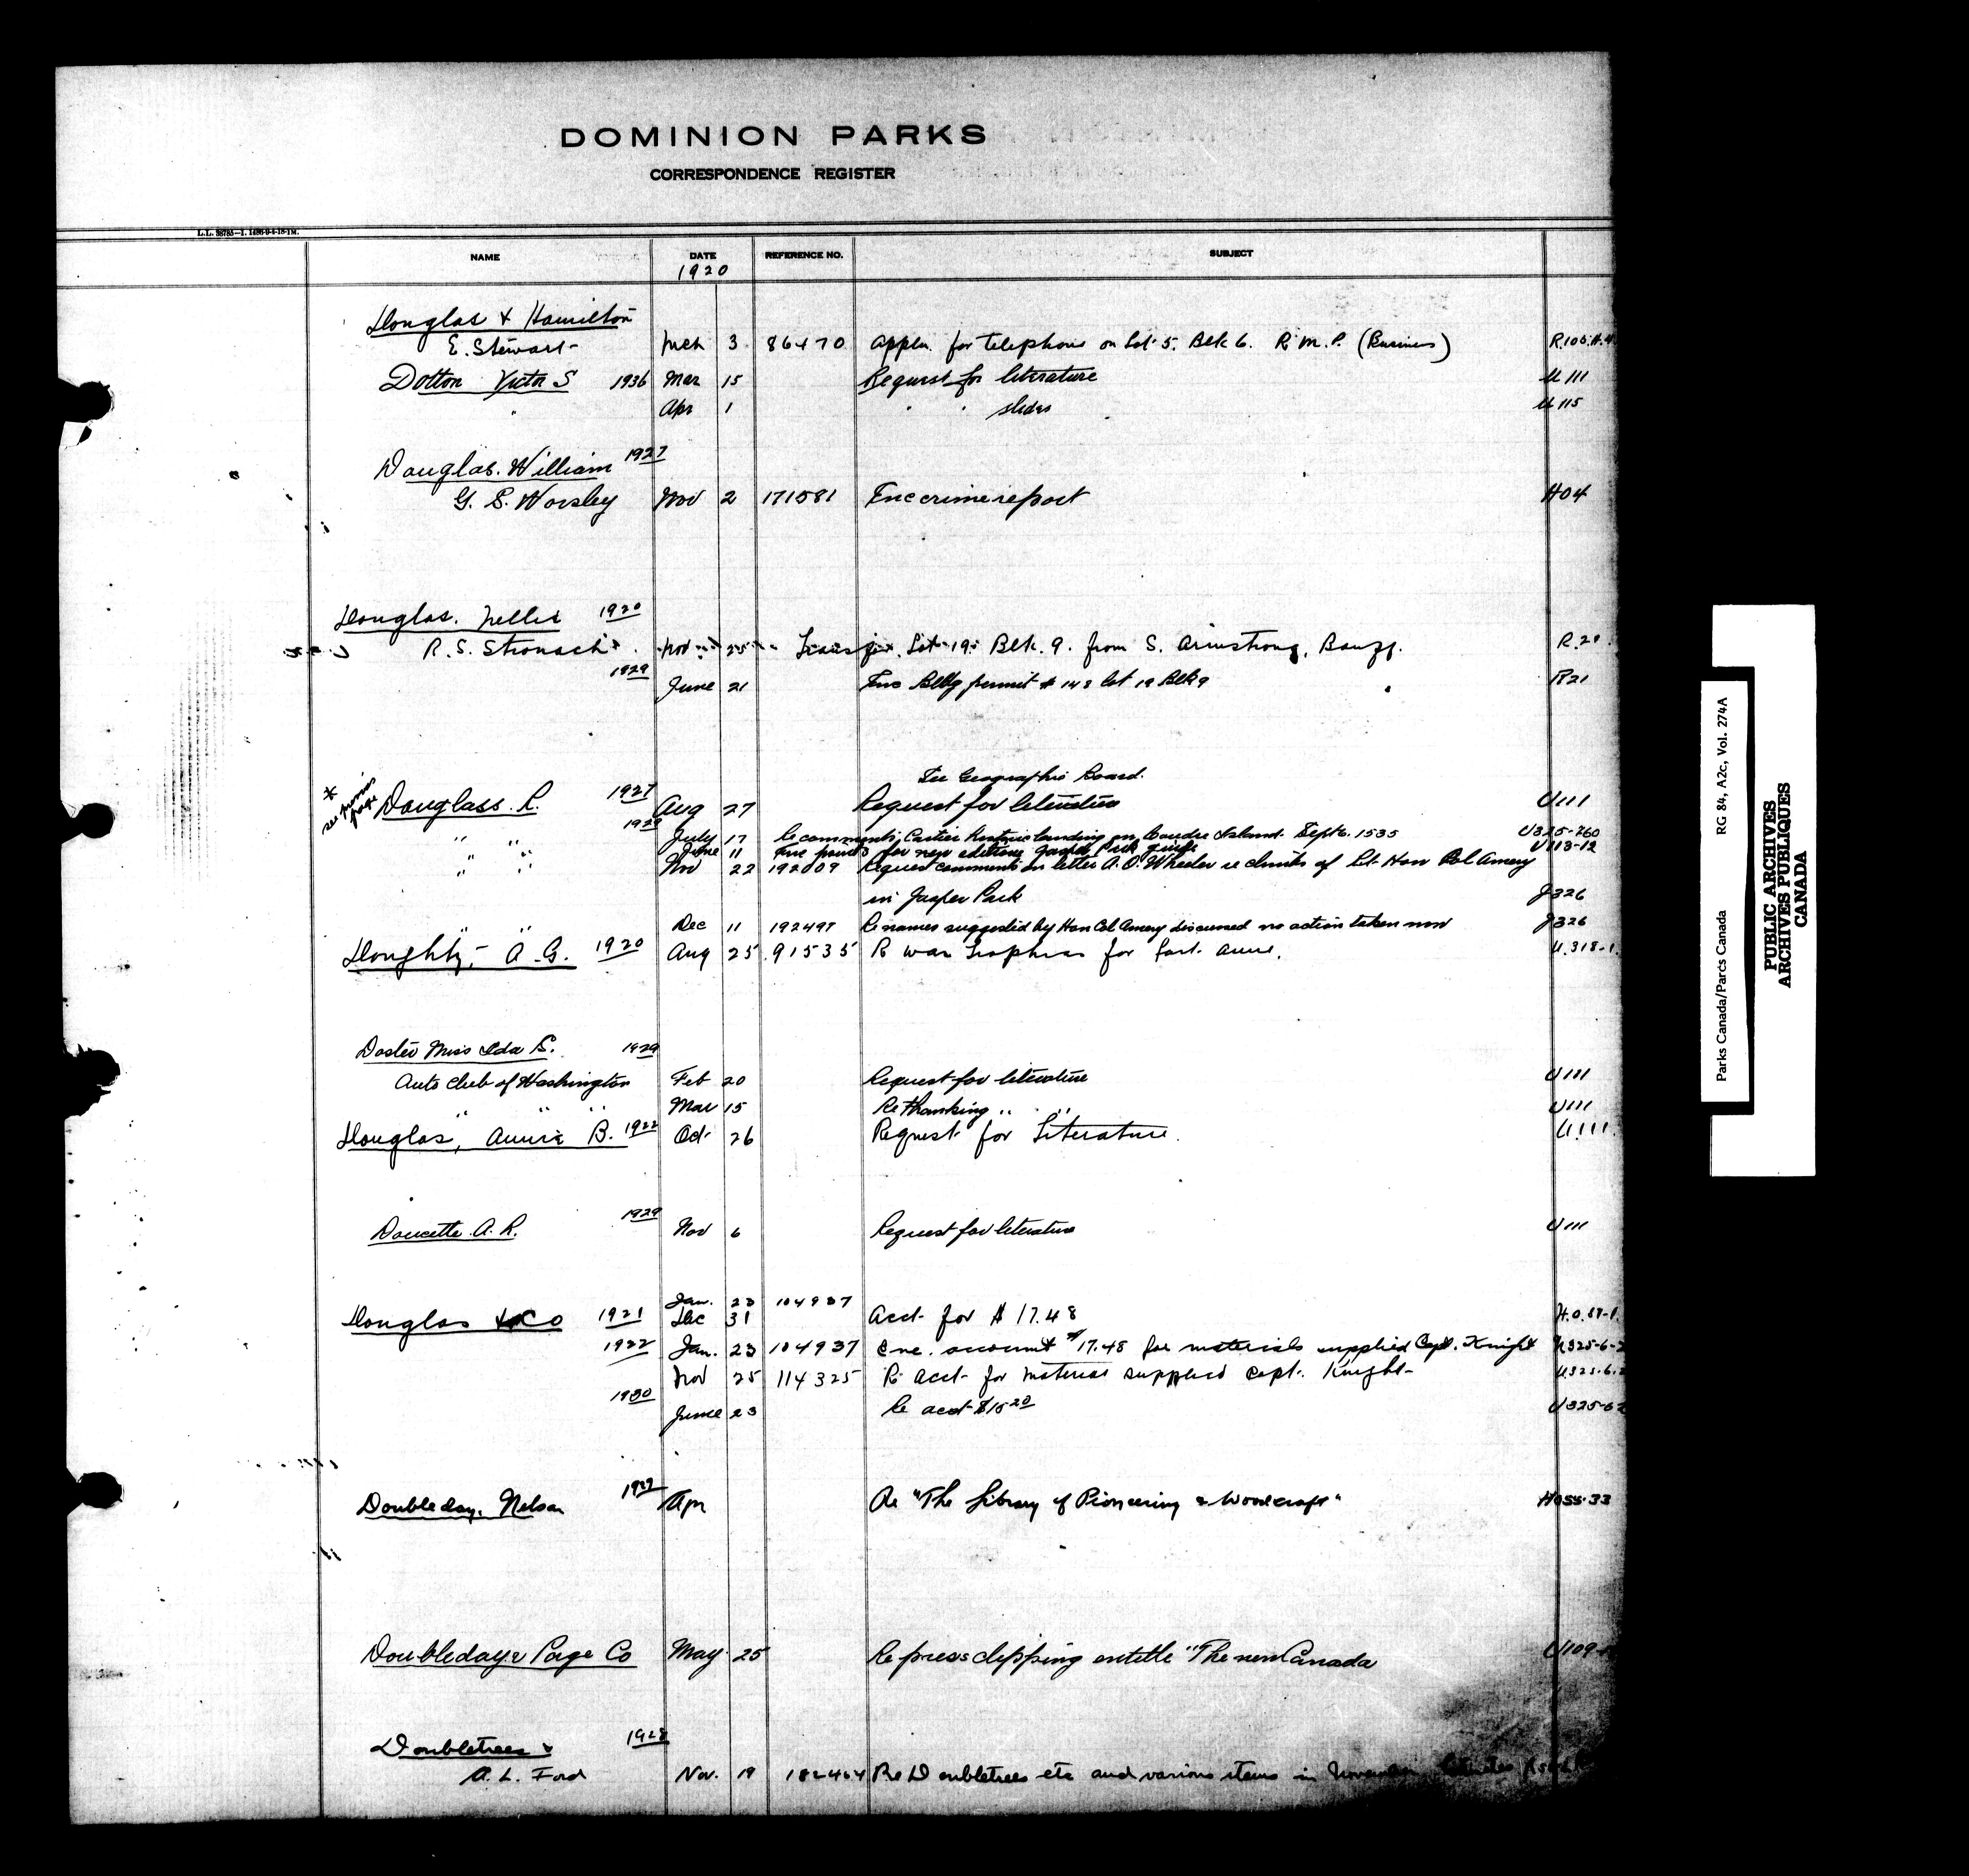 DOMINION PARKS
CORRESPONDENCE REGISTER
L.L. 58785—1. 1486-9-4-18-1M.
NAME DATE REFERENCE NO. SUBJECT
1920
Douglas & Hamilton
E. Stewart Mch 3 86470 Appln. for telephone on Lot 5. Blk 6. R.M.P. (Business) R.106.H.
Dotton Victor S 1936 Mar 15 Request for literature U 111
" Apr 1 " " slides U 115
Douglas. William 1927
G. E. Worsley Nov 2 171581 Enc crime report H04
Douglas. Nellie 1920
R. S. Stronach Nov 25 Transfer. Lot 19 Blk. 9. from S. Armstrong, Banff. R.21
1929 June 21 Enc Bldg permit # 148 lot 19 Blk 9 R21
See Geographic Board.
* see previous page
Douglass. R. 1927 Aug 27 Request for literature U111
" " 1929 July 17 Re comments, Cartier historic landing on Coudre Island. Sept 6. 1535 U325-260
June 11 Enc for new edition Jasper Park guide U113-12
" " Nov 22 192009 Request comments on letter A. O. Wheeler re climbs of Rt Hon Col Amery
in Jasper Park J326
" " Dec 11 192497 Re names suggested by Hon Col Amery discussed no action taken now J326
Doughty, A.G. 1920 Aug 25 91535 R war trophies for Fort Anne. U.318-1.
Doster Miss Ida B. 1929
Auto Club of Washington Feb 20 Request for literature U111
" " " Mar 15 Re thanking " " U111
Douglas, Annie B. 1922 Oct 26 Request for Literature. U.111.
Doucette A. R. 1929 Nov 6 Request for literature U111
Jan. 23 104937
Douglas & Co 1921 Dec 31 Acct for $17.48 H.O.87-1.
1922 Jan. 23 104937 Enc. account $17.48 for materials supplied Capt. Knight U325-6-2
Nov 25 114325 R acct for material supplied Capt. Knight U325.6.2
1930 June 23 Re acct $15.20 U325-6-2
Doubleday. Nelson 1922 Apr Re "The Library of Pioneering & Woodcraft" H055-33
Doubleday & Page Co May 25 Re press clipping entitle "The new Canada U109-
Doubletrees 1928
A. L. Ford Nov. 19 182464 Re Doubletrees etc and various items in November
PUBLIC ARCHIVES
ARCHIVES PUBLIQUES
CANADA
Parks Canada/Parcs Canada RG 84, A2c, Vol. 274A